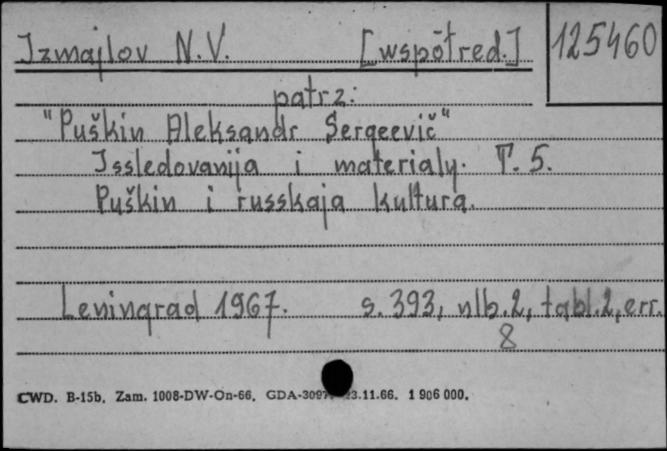 Izmajlov N.V. [współred.] 125460
patrz:
"Puškin Aleksandr Sergeevič"
Issledovanija i materialy. T. 5.
Puškin i russkaja kultura.
Leningrad 1967. s. 393, nlb. 2, tabl. 2, err.
8
CWD. B-15b. Zam. 1008-DW-On-66. GDA-3097 23.11.66. 1 906 000.